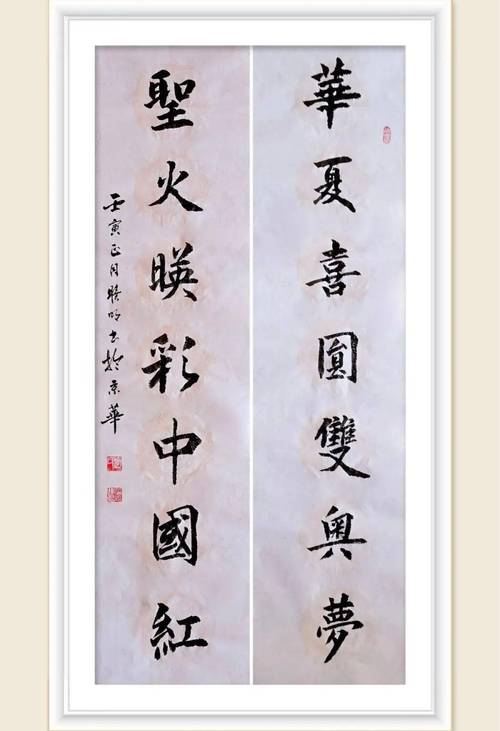 華夏喜圓雙奧夢
聖火暎彩中國紅
壬寅正月明书於京華